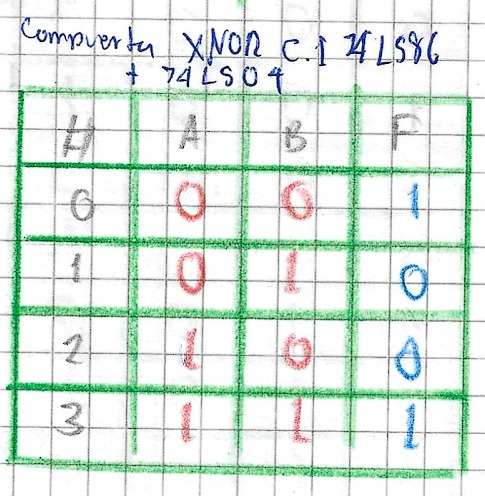 Compuerta XNOR C.I 74LS86
+ 74LS04
# A B F
0 0 0 1
1 0 1 0
2 1 0 0
3 1 1 1